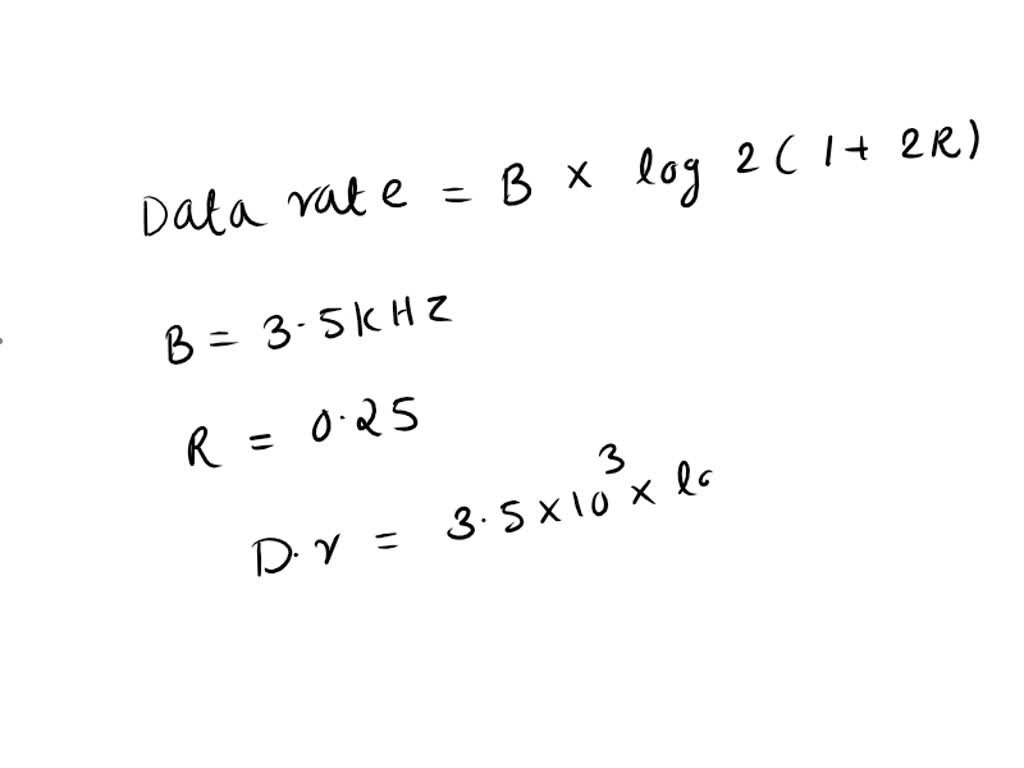 Data rate = B × log 2 ( 1 + 2R )
B = 3.5 KHZ
R = 0.25
D.r = 3.5 × 10³ × lo